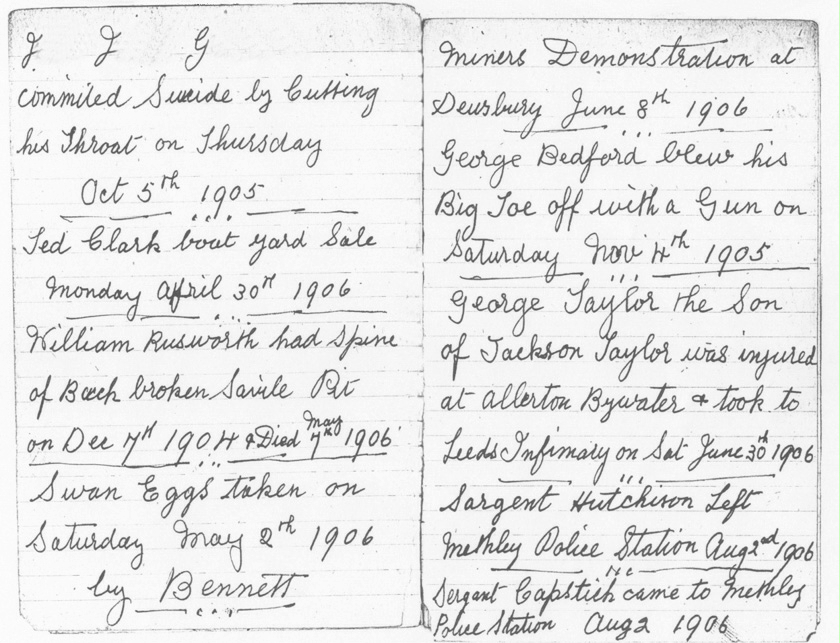 J J G
commited Suicide by Cutting
his Throat on Thursday
Oct 5th 1905
Ted Clark boat yard Sale
Monday April 30th 1906
William Rusworth had Spine
of Back broken Savile Pit
on Dec 7th 1904 & Died May 7th 1906
Swan Eggs taken on
Saturday May 2nd 1906
by Bennett
Miners Demonstration at
Dewsbury June 8th 1906
George Bedford blew his
Big Toe off with a Gun on
Saturday Nov 4th 1905
George Taylor the Son
of Jackson Taylor was injured
at Allerton Bywater & took to
Leeds Infimary on Sat June 30th 1906
Sargent Hutchison Left
Methley Police Station Aug 2nd 1906
Sergant Capstick came to Methley
Police Station Aug 2 1906